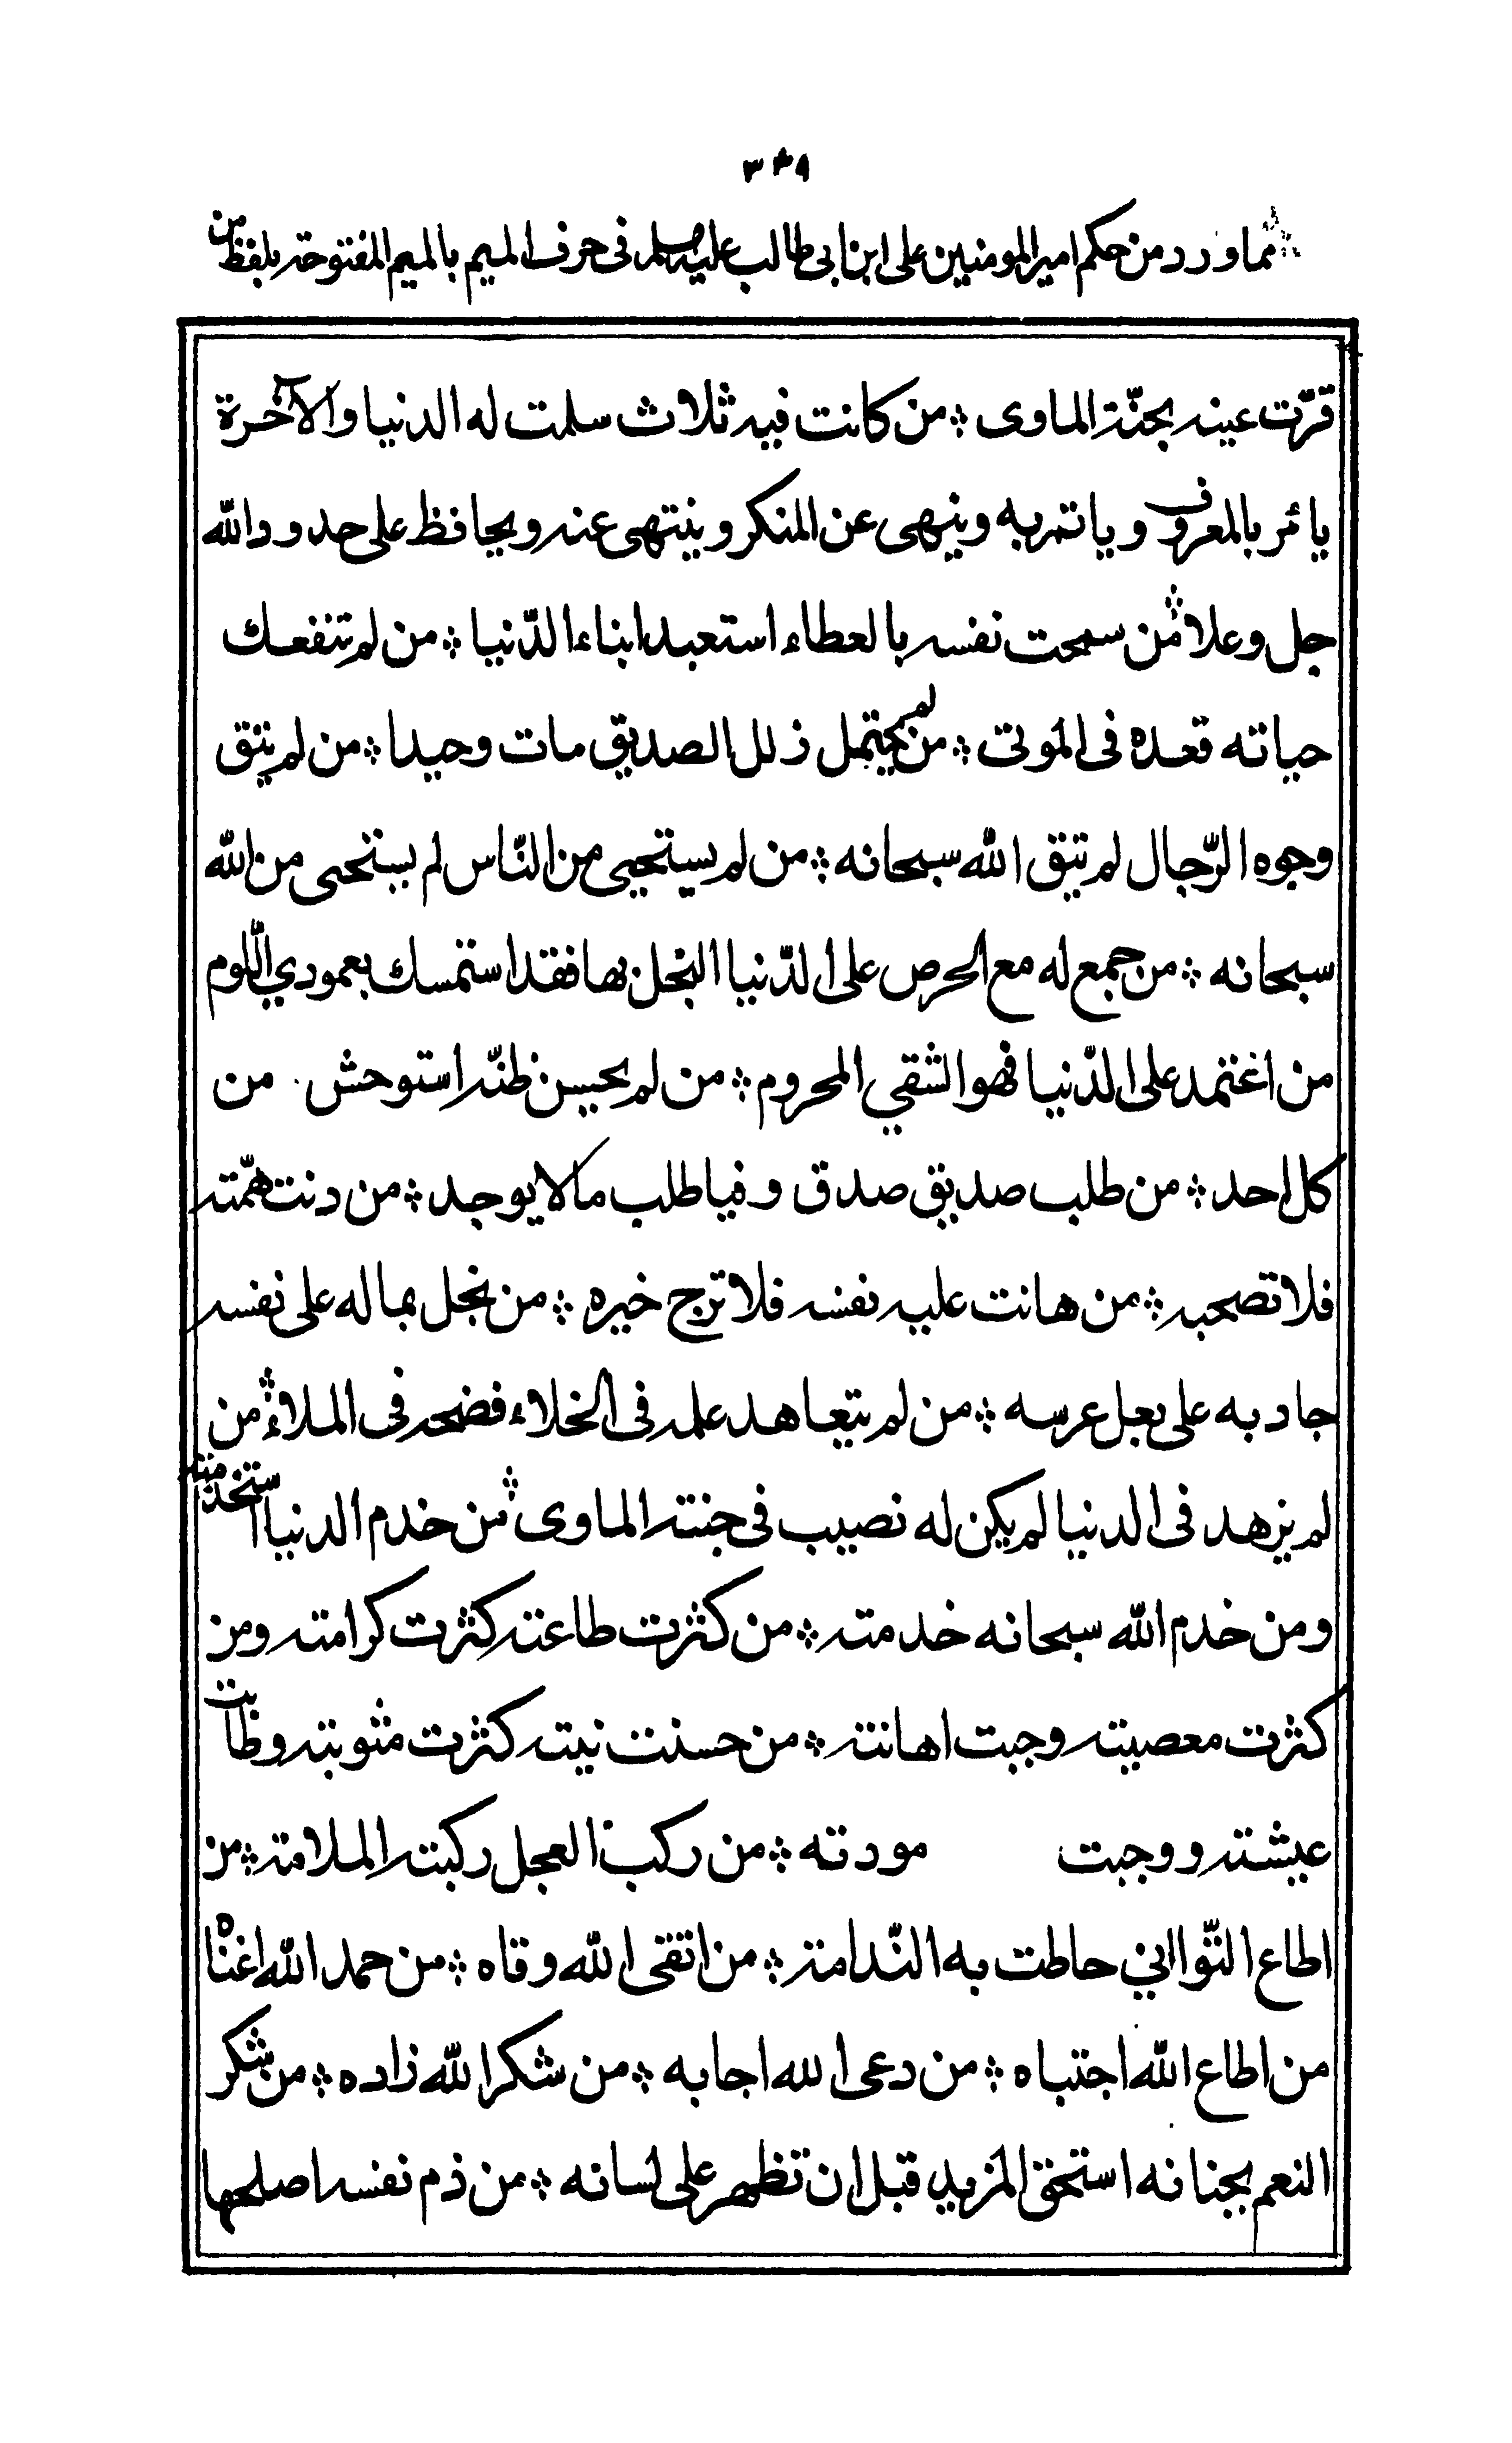 ٣٤٩
مما ورد من حكم امير المومنين على ابن ابى طالب عليه فى حرف الميم بالميم المفتوحة بلفظ من
قرّت عينه بجنّة الماوى ∴ من كانت فيه ثلاث سلمت له الدنيا والآخرة
يائمر بالمعروف وياتمر به وينهى عن المنكر وينتهى عنه ويحافظ على حدود الله
جل وعلا ∴ من سمحت نفسه بالعطاء استعبد ابناء الدّنيا ∴ من لم تنفعك
حياته فعده فى الموتى ∴ من لم يحتمل زلل الصديق مات وحيدا ∴ من لم يتق
وجوه الرّجال لم يتق الله سبحانه ∴ من لم يستحيى من النّاس لم يستحى من الله
سبحانه ∴ من جمع له مع الحرص على الدّنيا البخل بها فقد استمسك بعمودي اللّوم
من اغتمد على الدّنيا فهو الشقي المحروم ∴ من لم يحسن ظنّه استوحش من
كل احد ∴ من طلب صديق صدق وفيا طلب مالا يوجد ∴ من دنت همّته
فلا تصحبه ∴ من هانت عليه نفسه فلا ترج خيره ∴ من بخل بماله على نفسه
جاد به على بعل عرسه ∴ من لم يتعاهد علمه فى الخلاء فضحه فى الملاء ∴ من
لم يزهد فى الدنيا لم يكن له نصيب فى جنته الماوى ∴ من خدم الدنيا استخدمته
ومن خدم الله سبحانه خدمته ∴ من كثرت طاعته كثرت كرامته ومن
كثرت معصيته وجبت اهانته ∴ من حسنت نيته كثرت مثوبته وطابت
عيشته ووجبت مودته ∴ من ركب العجل ركبته الملامة ∴ من
اطاع التّوااني حاطت به النّدامة ∴ من اتقى الله وقاه ∴ من حمد الله اغناه
من اطاع الله اجتباه ∴ من دعى الله اجابه ∴ من شكر الله زاده ∴ من شكر
النعم بجنانه استحق المزيد قبل ان تظهر على لسانه ∴ من ذم نفسه اصلحها